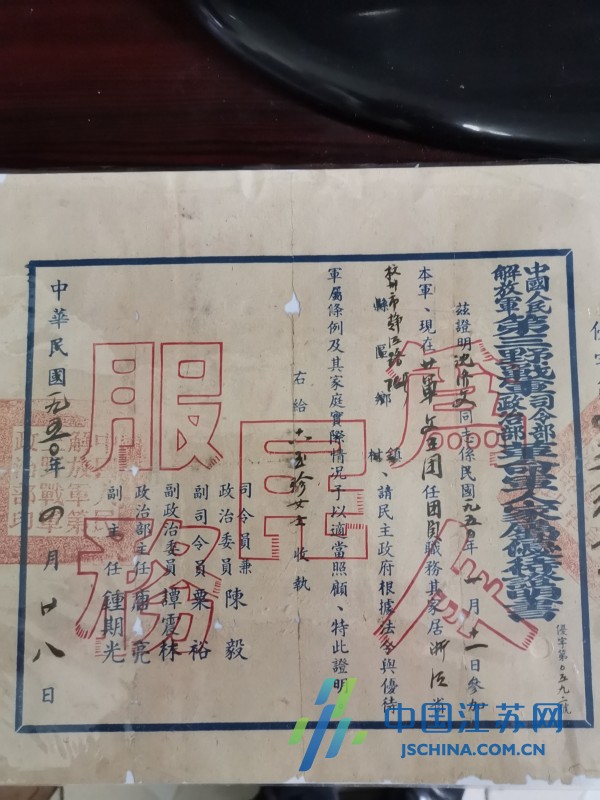 中國人民
解放軍
第三野戰軍
司令部
政治部
革命軍人家屬優待證明書
優字第〇五九二號
茲證明沈 同志係民國一九五〇年 月十一日參加
本軍、現在廿軍文工團任團員職務其家居浙江省
杭州市 路 縣 區 鄉 鎮 村、請民主政府根據法令與優待
軍屬條例及其家庭實際情況予以適當照顧、特此證明
右給 玉珍女士 收執
司令員兼
政治委員 陳毅
副司令員 粟裕
副政治委員 譚震林
政治部主任 唐亮
副主任 鍾期光
中華民國一九五〇年四月廿八日
為人民服務
中国江苏网
JSCHINA.COM.CN